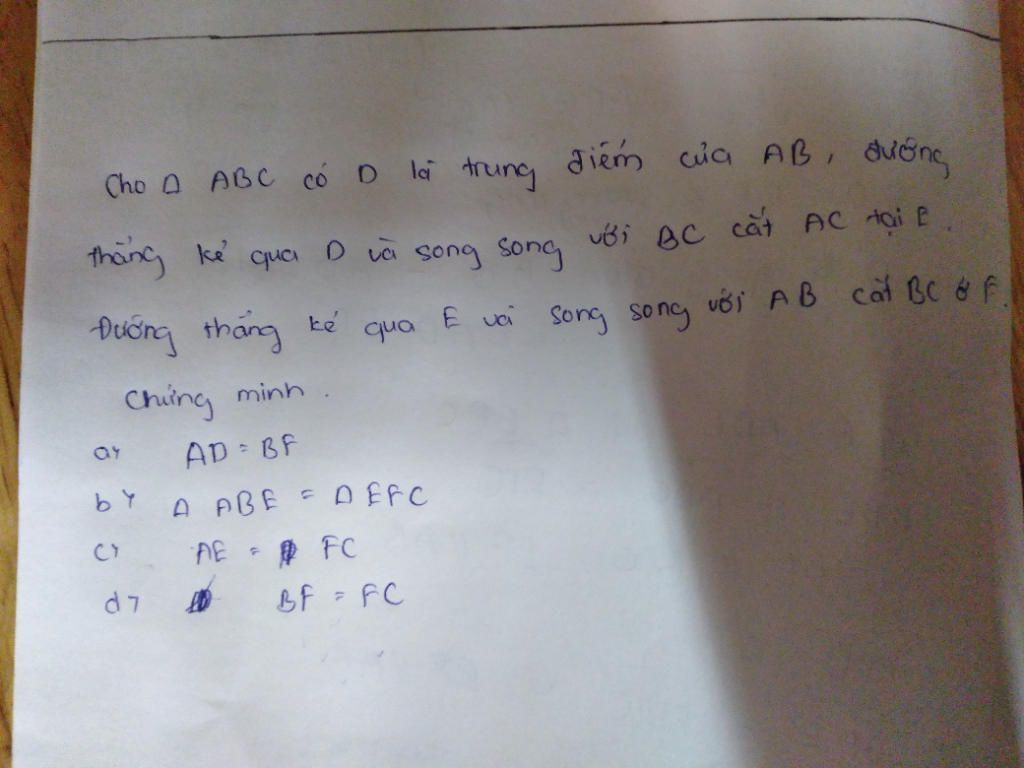 Cho Δ ABC có D là trung điểm của AB, đường
thẳng kẻ qua D và song song với BC cắt AC tại E.
Đường thẳng kẻ qua E và song song với AB cắt BC ở F.
Chứng minh.
a, AD = BF
b, Δ ABE = Δ EFC
c, AE = FC
d, BF = FC